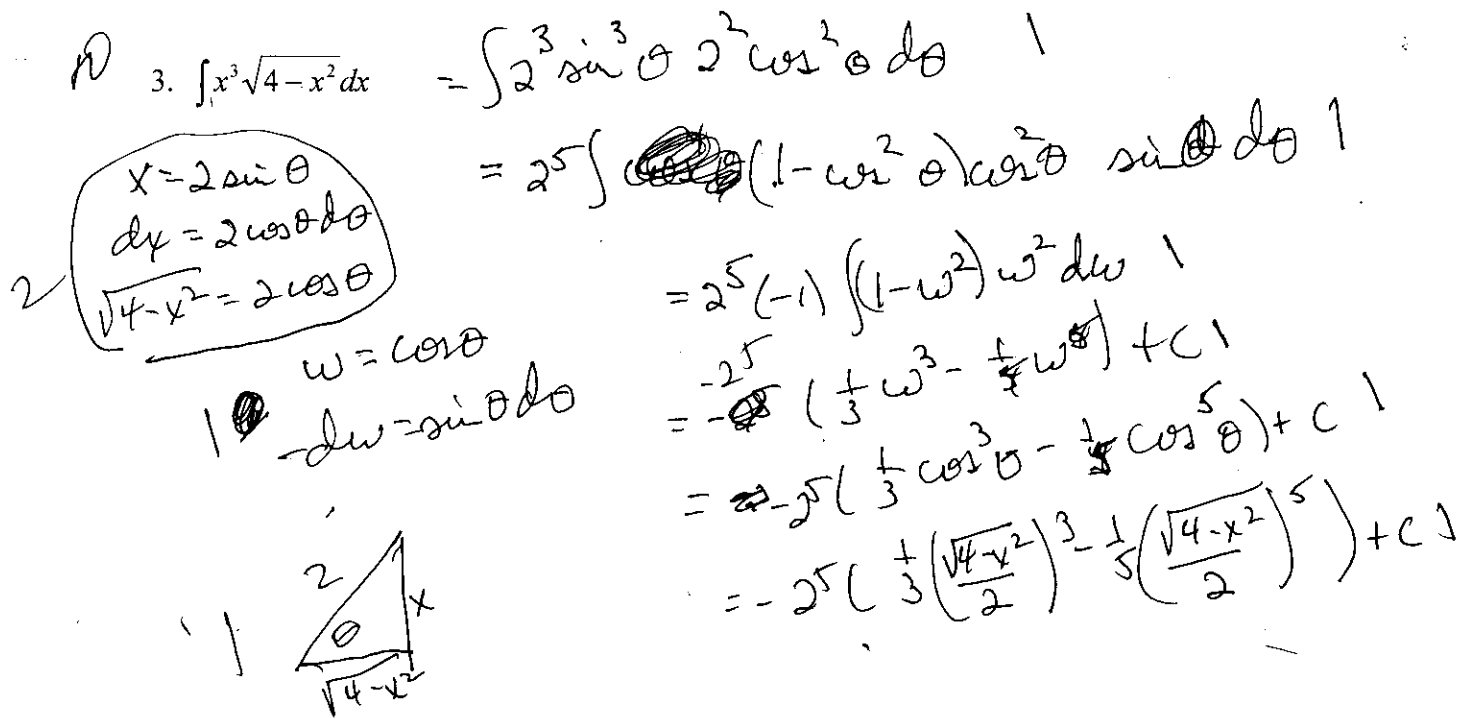 10 3. ∫x³√(4 − x²) dx = ∫2³ sin³θ 2² cos²θ dθ 1
= 2⁵∫(1 − cos²θ)cos²θ sinθ dθ 1
x = 2 sin θ
dx = 2 cosθ dθ
2 √(4−x²) = 2 cosθ
= 2⁵(−1) ∫(1−w²) w² dw 1
w = cosθ
1 −dw = sinθ dθ
= −2⁵ (1/3 w³ − 1/5 w⁵) + C 1
= −2⁵ (1/3 cos³θ − 1/5 cos⁵θ) + C 1
= −2⁵ (1/3 (√(4−x²)/2)³ − 1/5 (√(4−x²)/2)⁵) + C 1
2
1 θ x
√(4−x²)